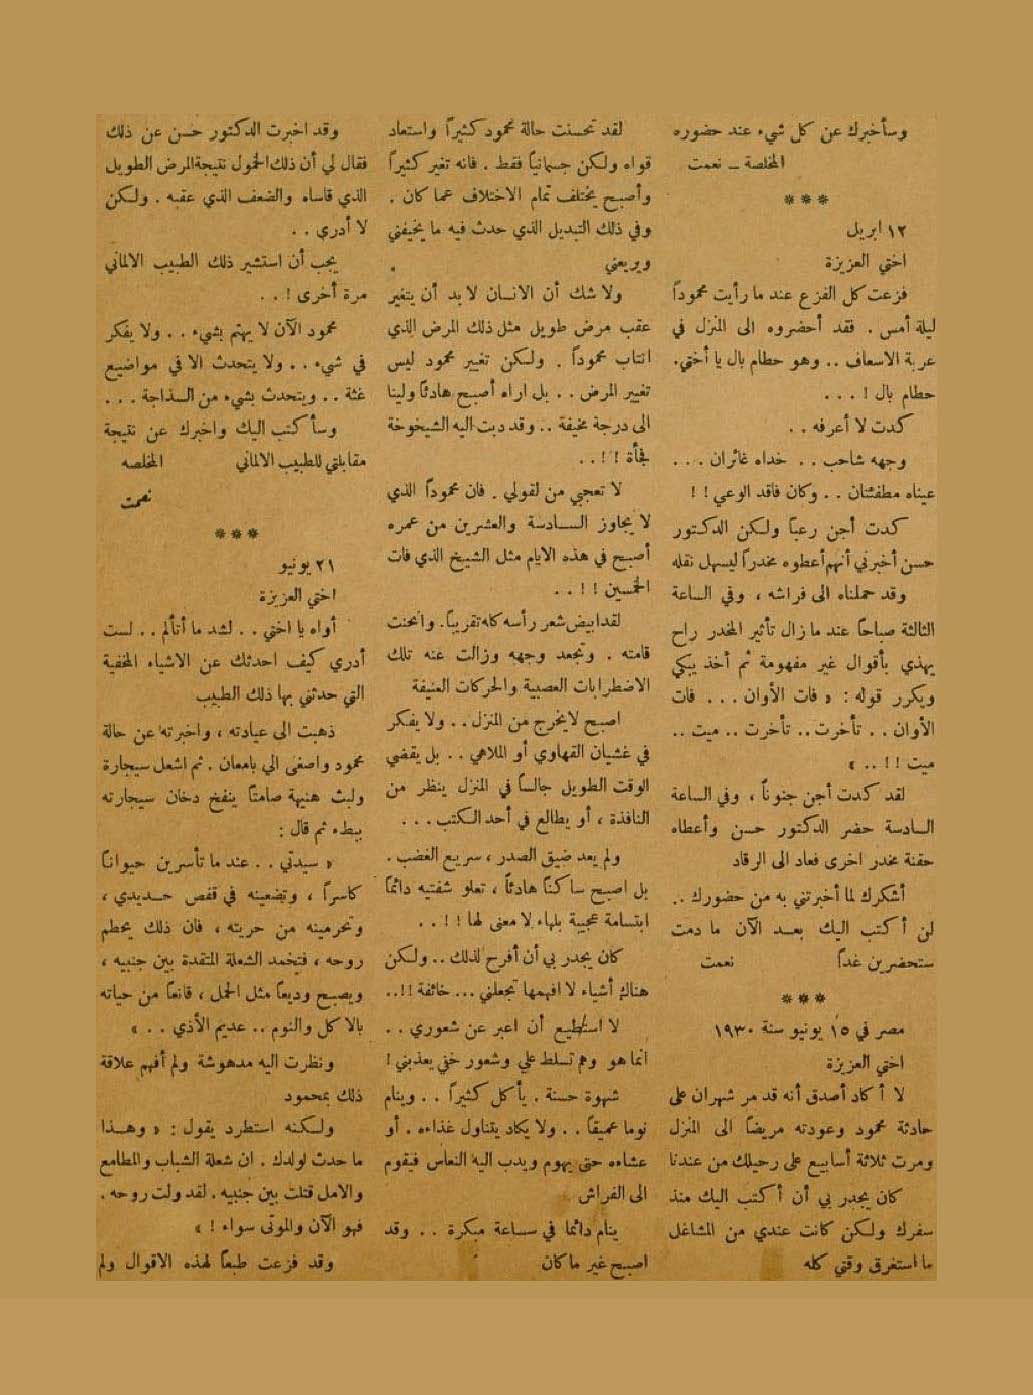 وسأخبرك عن كل شيء عند حضوره
المخلصة ــ نعمت
***
١٢ ابريل
اختي العزيزة
فزعت كل الفزع عند ما رأيت محموداً
ليلة أمس . فقد أحضروه الى المنزل في
عربة الاسعاف .. وهو حطام بال يا أختي.
حطام بال ! ...
كدت لا أعرفه . .
وجهه شاحب .. خداه غائران ...
عيناه مطفئتان .. وكان فاقد الوعي ! !
كدت أجن رعباً ولكن الدكتور
حسن أخبرني أنهم أعطوه مخدراً ليسهل نقله
وقد حملناه الى فراشه ، وفي الساعة
الثالثة صباحاً عند ما زال تأثير المخدر راح
يهذي بأقوال غير مفهومة ثم أخذ يبكي
ويكرر قوله : « فات الأوان ... فات
الأوان . . تأخرت .. تأخرت .. ميت ..
ميت ! ! .. »
لقد كدت أجن جنوناً ، وفي الساعة
السادسة حضر الدكتور حسن وأعطاه
حقنة مخدر اخرى فعاد الى الرقاد
أشكرك لما أخبرتني به من حضورك ..
لن أكتب اليك بعد الآن ما دمت
ستحضرين غداً نعمت
***
مصر في ١٥ يونيو سنة ١٩٣٠
اختي العزيزة
لا أكاد أصدق أنه قد مر شهران على
حادثة محمود وعودته مريضاً الى المنزل
ومرت ثلاثة أسابيع على رحيلك من عندنا
كان يجدر بي أن أكتب اليك منذ
سفرك ولكن كانت عندي من المشاغل
ما استغرق وقتي كله
لقد تحسنت حالة محمود كثيراً واستعاد
قواه ولكن جسمانياً فقط . فانه تغير كثيراً
وأصبح يختلف تمام الاختلاف عما كان .
وفي ذلك التبديل الذي حدث فيه ما يخيفني
ويريعني .
ولا شك أن الانسان لا بد أن يتغير
عقب مرض طويل مثل ذلك المرض الذي
انتاب محموداً . ولكن تغيير محمود ليس
تغيير المرض .. بل اراه أصبح هادئاً ولينا
الى درجة مخيفة .. وقد دبت اليه الشيخوخة
فجأة ! ! ..
لا تعجبي من لقولي . فان محموداً الذي
لا يجاوز السادسة والعشرين من عمره
أصبح في هذه الايام مثل الشيخ الذي فات
الخمسين ! ! ..
لقد ابيض شعر رأسه كله تقريباً. وانحنت
قامته . وتجعد وجهه وزالت عنه تلك
الاضطرابات العصبية والحركات العنيفة
اصبح لا يخرج من المنزل .. ولا يفكر
في غشيان القهاوي أو الملاهي .. بل يقضي
الوقت الطويل جالساً في المنزل ينظر من
النافذة ، أو يطالع في أحد الكتب ...
ولم يعد ضيق الصدر ، سريع الغضب .
بل اصبح ساكناً هادئاً ، تعلو شفتيه دائماً
ابتسامة عجيبة بلهاء لا معنى لها ! ! ..
كان يجدر بي أن أفرح لذلك .. ولكن
هناك أشياء لا افهمها تجعلني ... خائفة !! ..
لا استطيع أن اعبر عن شعوري ..
انما هو وهم تسلط علي وشعور خفي يعذبني !
شهوة حسنة . يأكل كثيراً .. وينام
نوما عميقاً .. ولا يكاد يتناول غذاءه . أو
عشاءه حتى يهوم ويدب اليه النعاس فيقوم
الى الفراش
ينام دائما في ساعة مبكرة .. وقد
اصبح غير ما كان
وقد اخبرت الدكتور حسن عن ذلك
فقال لي أن ذلك الخمول نتيجة المرض الطويل
الذي قاساه والضعف الذي عقبه . ولكن
لا أدري ..
يجب أن استشير ذلك الطبيب الالماني
مرة أخرى ! ..
محمود الآن لا يهتم بشيء .. ولا يفكر
في شيء .. ولا يتحدث الا في مواضيع
غثة .. ويتحدث بشيء من السذاجة ...
وسأكتب اليك واخبرك عن نتيجة
مقابلتي للطبيب الالماني المخلصه
نعمت
***
٢١ يونيو
اختي العزيزة
أواه يا اختي .. لشد ما أتألم .. لست
أدري كيف احدثك عن الاشياء المخفية
التي حدثني بها ذلك الطبيب
ذهبت الى عيادته ، واخبرته عن حالة
محمود واصغى الي بامعان . ثم اشعل سيجارة
ولبث هنيهة صامتاً ينفخ دخان سيجارته
ببطء ثم قال :
« سيدتي .. عند ما تأسرين حيواناً
كاسراً ، وتضعينه في قفص حديدي ،
وتحرمينه من حريته ، فان ذلك يحطم
روحه ، فتخمد الشعلة المتقدة بين جنبيه ،
ويصبح وديعاً مثل الحمل ، قانعاً من حياته
بالاكل والنوم .. عديم الأذي .. »
ونظرت اليه مدهوشة ولم أفهم علاقة
ذلك بمحمود
ولكنه استطرد يقول : « وهذا
ما حدث لولدك . ان شعلة الشباب والمطامع
والامل قتلت بين جنبيه . لقد ولت روحه .
فهو الآن والموتى سواء ! »
وقد فزعت طبعاً لهذه الاقوال ولم